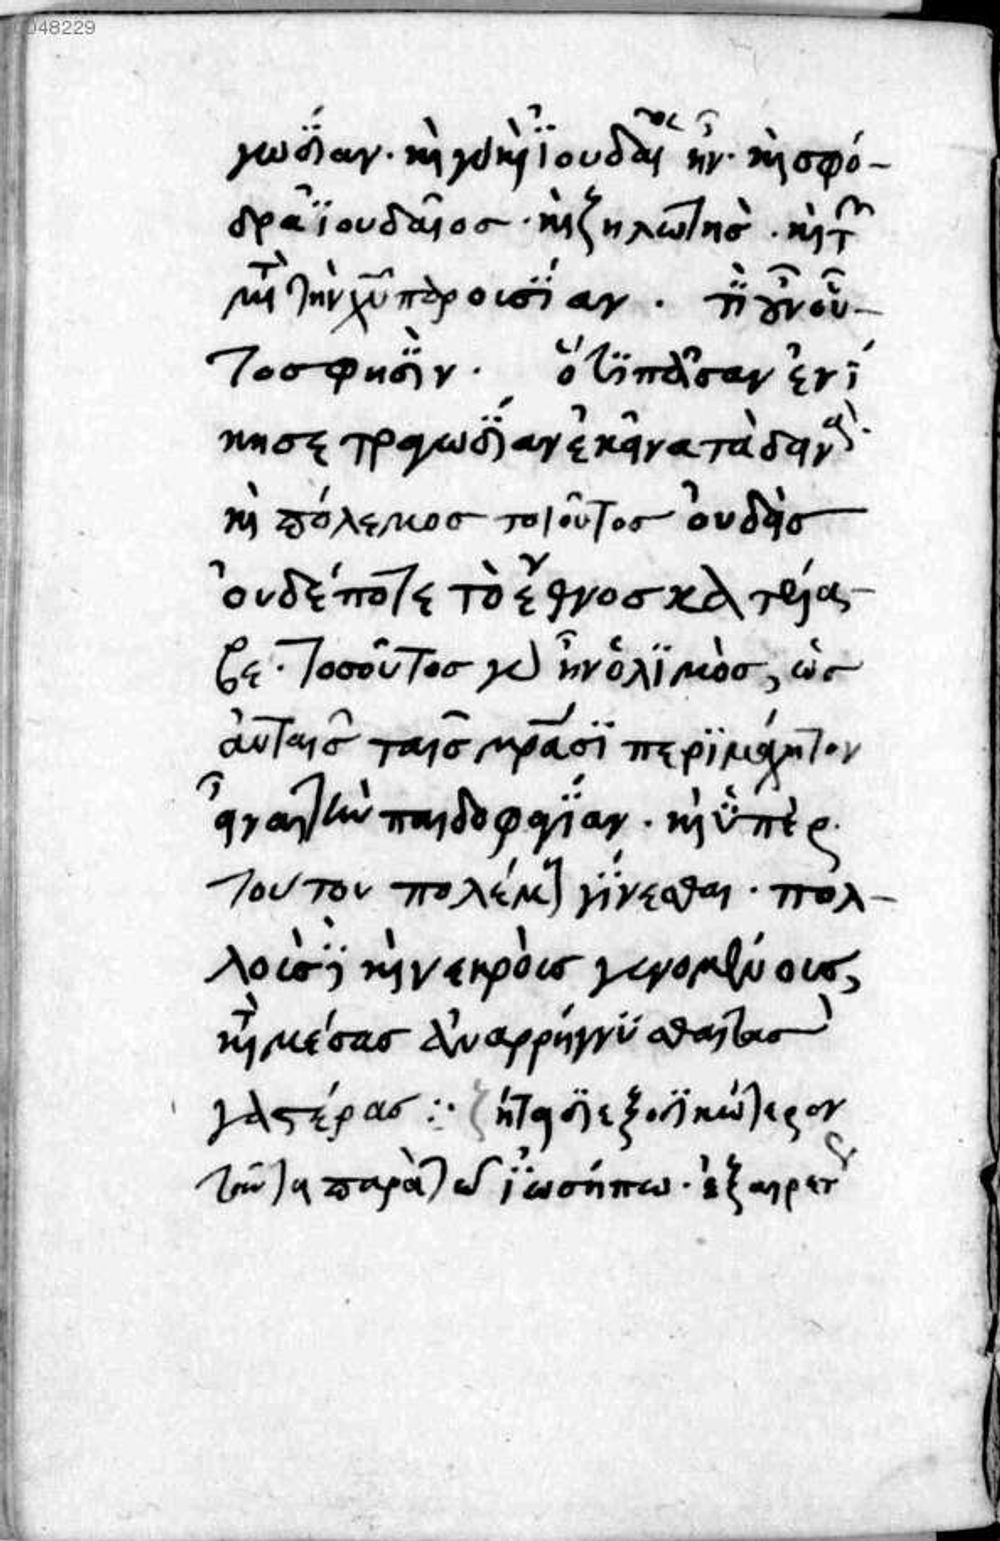 048229
γωδίαν· καὶ γὰρ καὶ ἰουδαῖος ἦν· καὶ σφό-
δρα ἰουδαῖος· καὶ ζηλωτὴς· καὶ τῶν
μετὰ τὴν χῦ παρουσίαν. τί οὖν οὗ-
τος φησὶν· ὅτι πᾶσαν ἐνί
κησε τραγωδίαν ἐκεῖνα τὰ δεινὰ·
καὶ πόλεμος τοιοῦτος οὐδεὶς
οὐδέποτε τὸ ἔθνος κατείλη-
φε· τοσοῦτος γὰρ ἦν ὁ λιμὸς, ὡς
αὐταῖς ταῖς μητράσι περιμάχητον
εἶναι τὴν παιδοφαγίαν· καὶ ὑπὲρ
τούτου πολέμους γίνεσθαι· πολ-
λοὺς δὲ καὶ νεκροὺς γενομένους,
κατὰ μέσας ἀναρρήγνυσθαι τὰς
γαστέρας :· ζήτει δὲ ἐξοδικώτερον
ταῦτα παρὰ τῶ ἰωσήπω· ἐξαιρετ